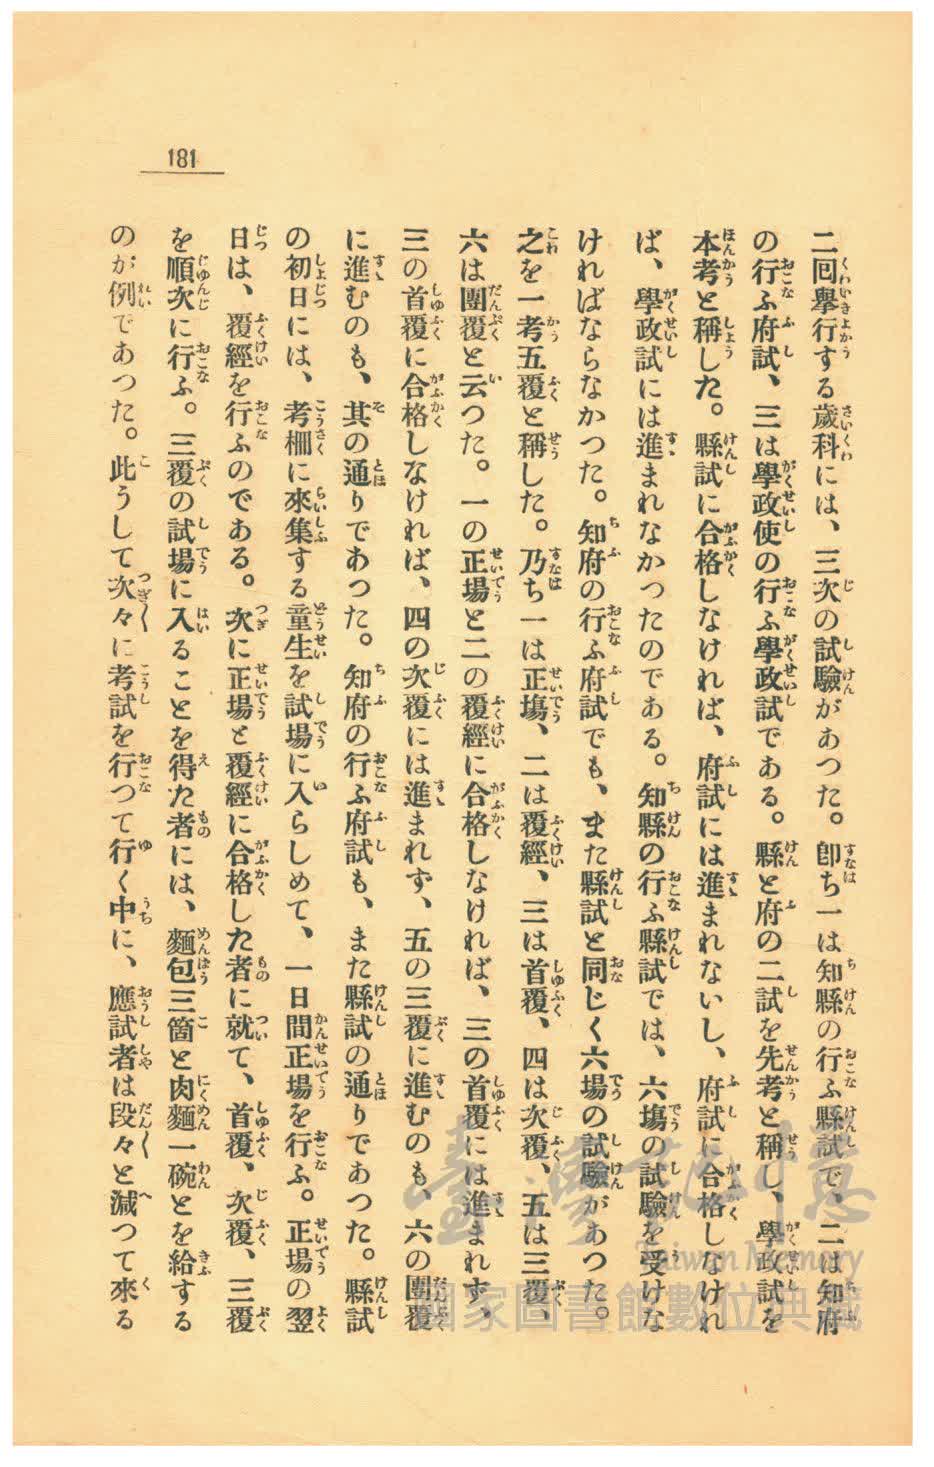 181
二回擧行する歲科には、三次の試驗があつた。卽ち一は知縣の行ふ縣試で、二は知府
の行ふ府試、三は學政使の行ふ學政試である。縣と府の二試を先考と稱し、學政試を
本考と稱した。縣試に合格しなければ、府試には進まれないし、府試に合格しなけれ
ば、學政試には進まれなかつたのである。知縣の行ふ縣試では、六塲の試驗を受けな
ければならなかつた。知府の行ふ府試でも、また縣試と同じく六場の試驗があつた。
之を一考五覆と稱した。乃ち一は正塲、二は覆經、三は首覆、四は次覆、五は三覆、
六は團覆と云つた。一の正場と二の覆經に合格しなければ、三の首覆には進まれず、
三の首覆に合格しなければ、四の次覆には進まれず、五の三覆に進むのも、六の團覆
に進むのも、其の通りであつた。知府の行ふ府試も、また縣試の通りであつた。縣試
の初日には、考柵に來集する童生を試場に入らしめて、一日間正場を行ふ。正場の翌
日は、覆經を行ふのである。次に正場と覆經に合格した者に就て、首覆、次覆、三覆
を順次に行ふ。三覆の試場に入ることを得た者には、麵包三箇と肉麵一碗とを給する
のが例であつた。此うして次々に考試を行つて行く中に、應試者は段々と減つて來る
臺灣記憶
Taiwan Memory
國家圖書館數位典藏